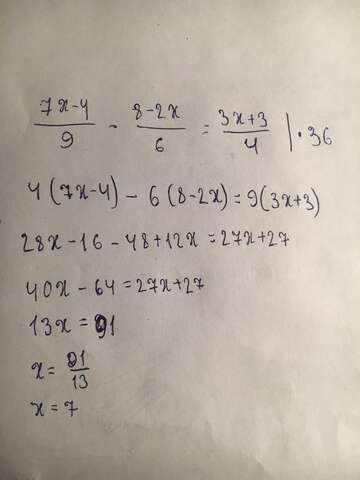 (7x-4)/9 - (8-2x)/6 = (3x+3)/4 | · 36
4(7x-4) - 6(8-2x) = 9(3x+3)
28x-16-48+12x=27x+27
40x-64=27x+27
13x=91
x=91/13
x=7